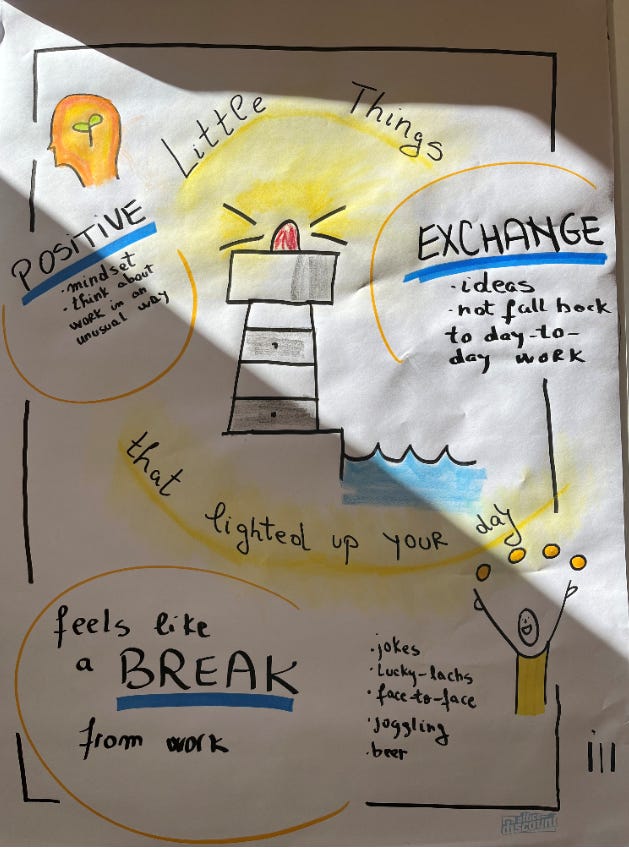 Little Things
POSITIVE
·mindset
·think about
work in an
unusual way
EXCHANGE
·ideas
·not fall back
to day-to-
day work
that lighted up your day
feels like
a BREAK
from work
·jokes
·Lucky-lachs
·face-to-face
·joggling
·beer
discount